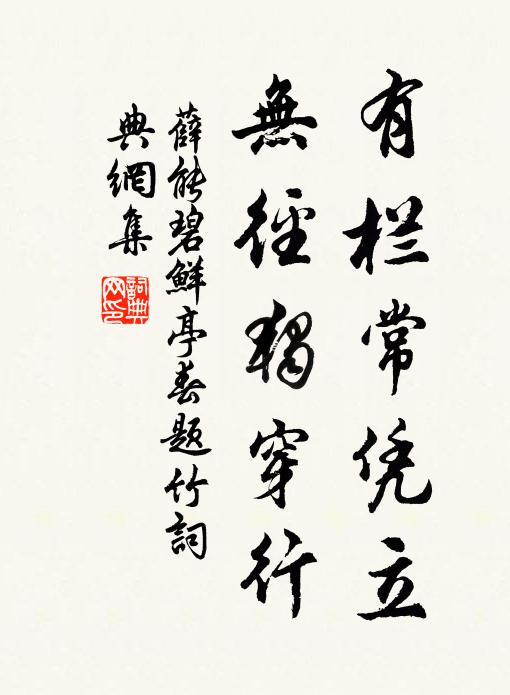 有栏常凭立
無徑獨穿行
薛能碧鮮亭春題竹詞
典網集
詞典网印